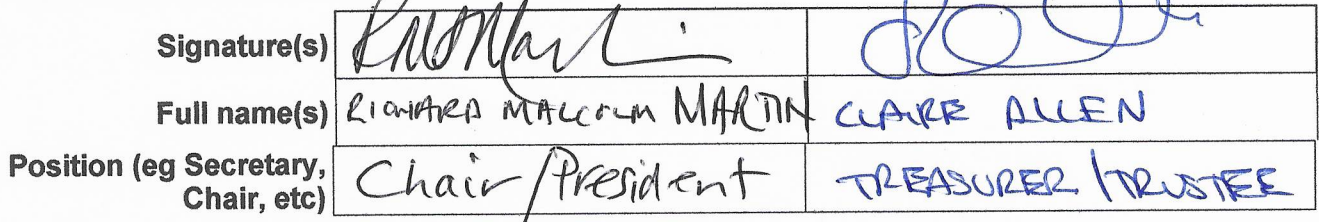 Signature(s)
Full name(s) RICHARD MALCOLM MARTIN CLAIRE ALLEN
Position (eg Secretary, Chair/President TREASURER/TRUSTEE
Chair, etc)